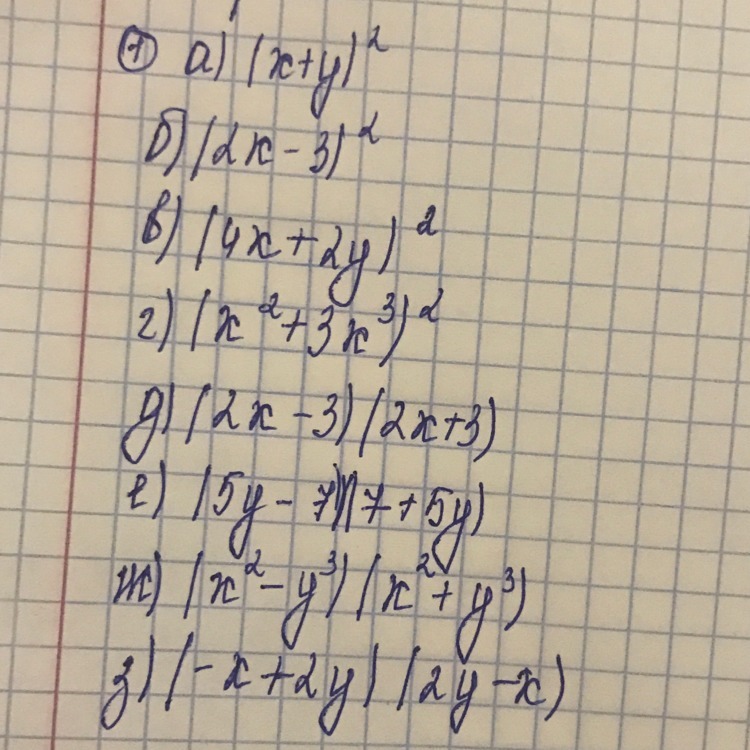 ① а) (x+y)²
б) (2x-3)²
в) (4x+2y)²
г) (x²+3x³)²
д) (2x-3)(2x+3)
е) (5y-7)(7+5y)
ж) (x²-y³)(x²+y³)
з) (-x+2y)(2y-x)